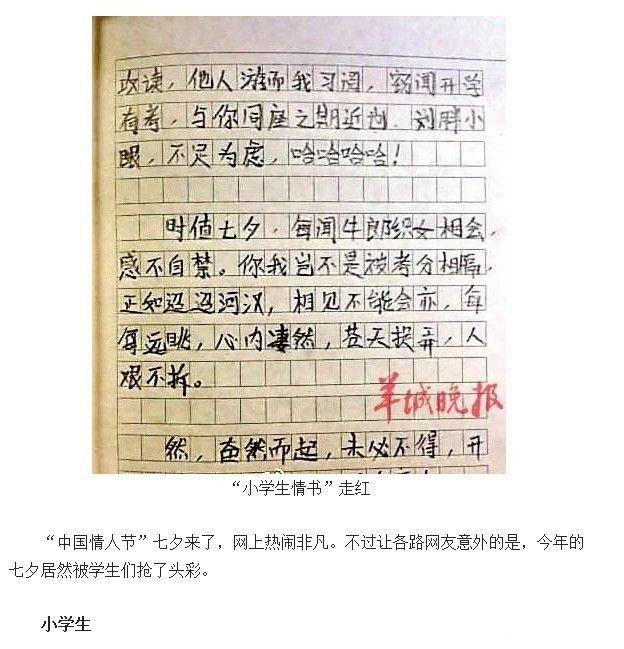 攻读，他人游而我习，窃闻开学
有考，与你同座之期近．刘胖小
眼，不足为虑，哈哈哈哈！
时值七夕．每闻牛郎织女相会，
感不自禁。你我岂不是被考分相隔，
正如迢迢河汉，相见不能会亦，每
每远眺，心内凄然，苍天捉弄，人
艰不拆。
羊城晚报
然，奋然而起，未必不得，开
“小学生情书”走红
“中国情人节”七夕来了，网上热闹非凡。不过让各路网友意外的是，今年的
七夕居然被学生们抢了头彩。
小学生